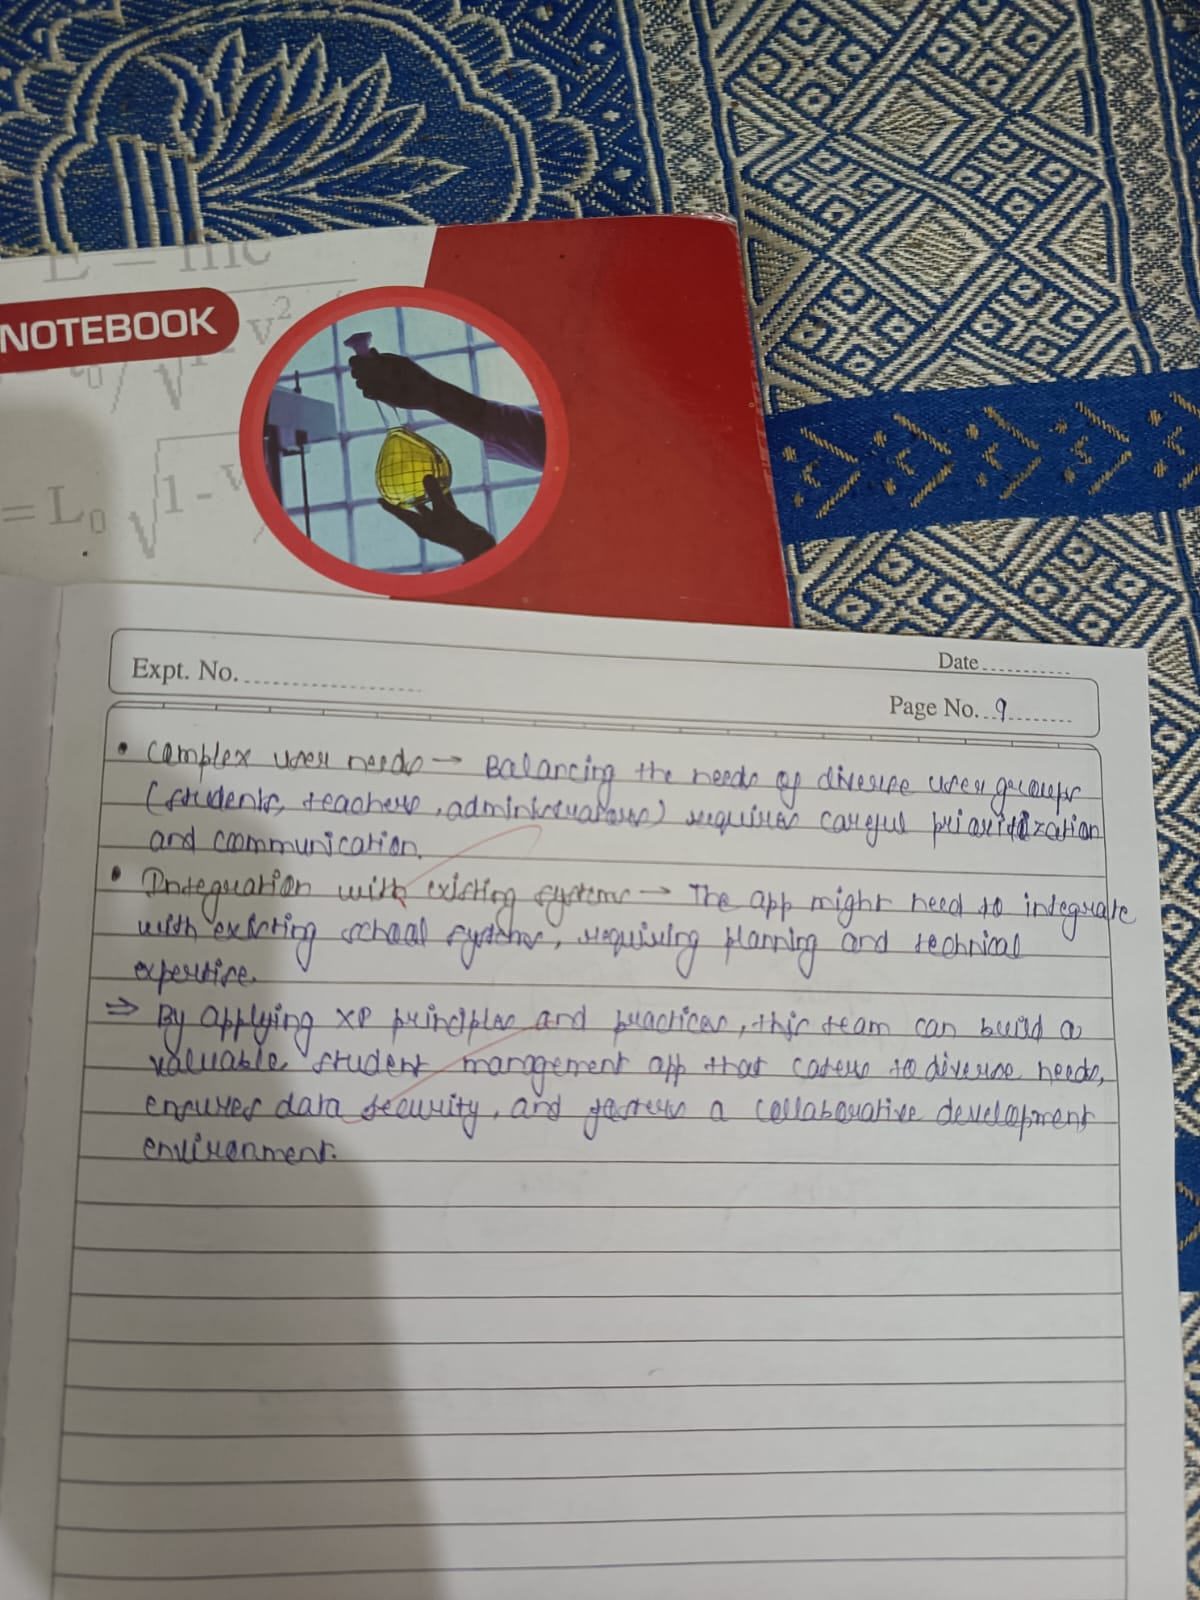 E = mc
NOTEBOOK
v²
= L₀ √1 - v
Expt. No.
Date
Page No. 9
• Complex user needs → Balancing the needs of diverse user groups
(students, teachers, administrators) requires careful prioritization
and communication.
• Integration with existing systems → The app might need to integrate
with existing school systems, requiring planning and technical
expertise.
⇒ By applying XP principles and practices, this team can build a
valuable student management app that caters to diverse needs,
ensures data security, and fosters a collaborative development
environment.